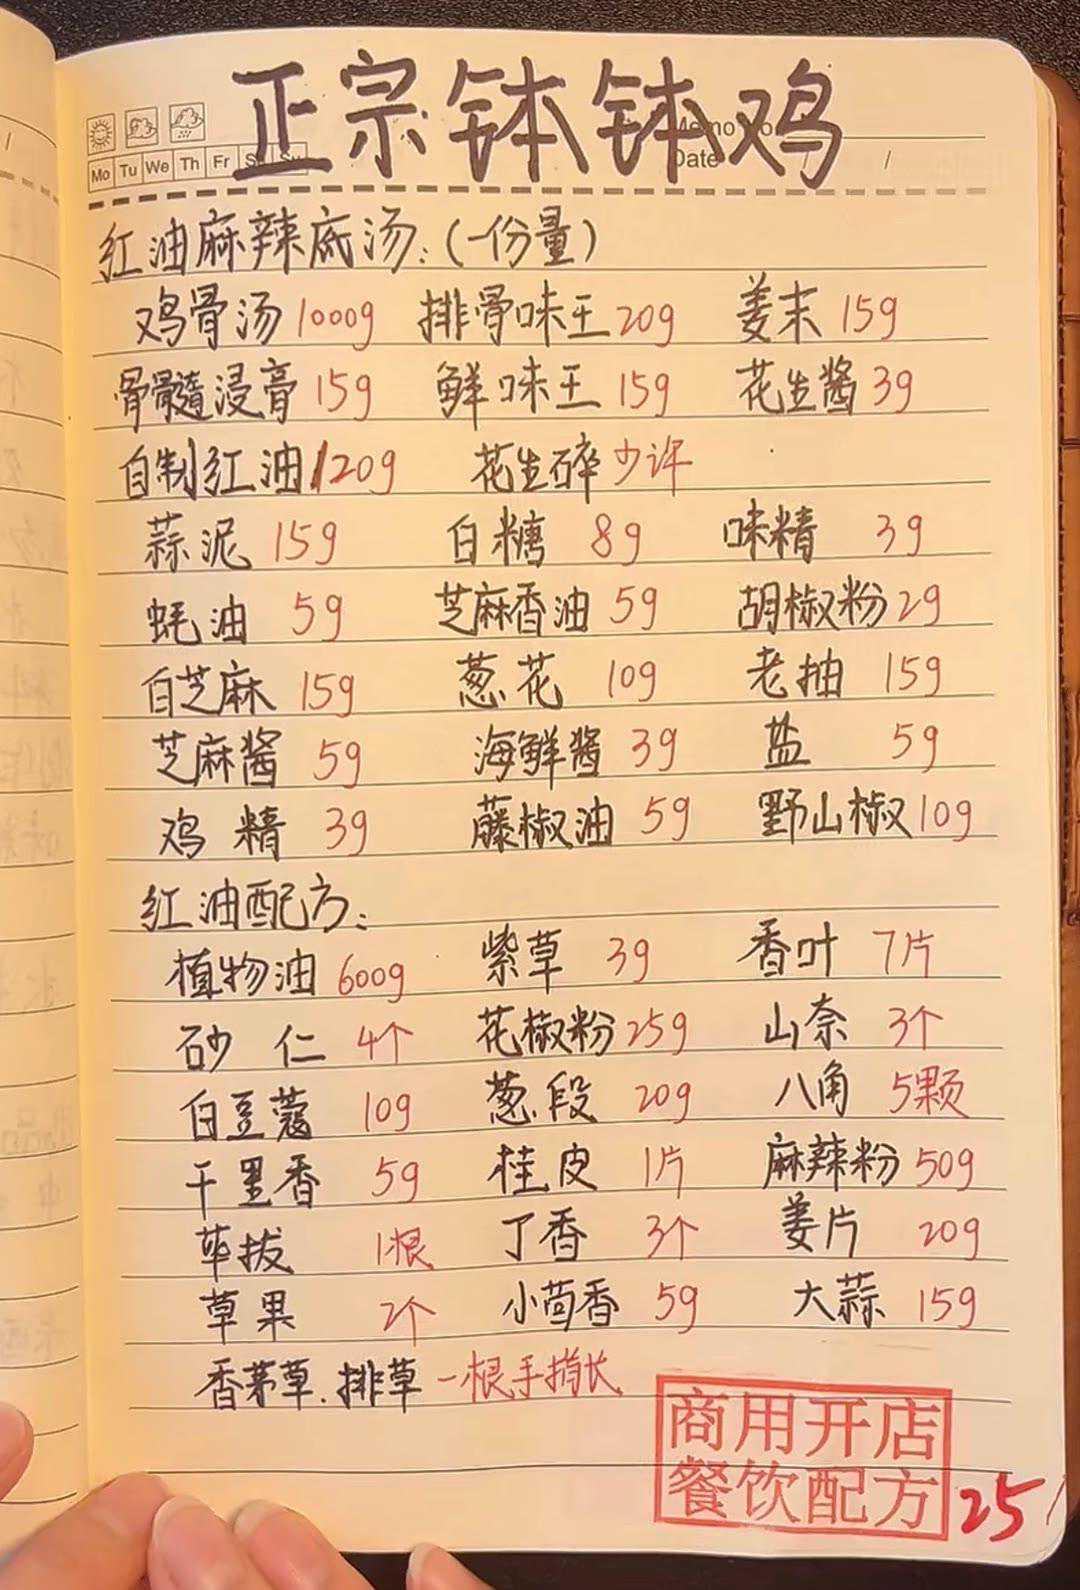 正宗钵钵鸡
Mo Tu We Th Fr Sa Su
Memo No.
Date / /
红油麻辣底汤:(一份量)
鸡骨汤 1000g 排骨味王 20g 姜末 15g
骨髓浸膏 15g 鲜味王 15g 花生酱 3g
自制红油 120g 花生碎 少许
蒜泥 15g 白糖 8g 味精 3g
蚝油 5g 芝麻香油 5g 胡椒粉 2g
白芝麻 15g 葱花 10g 老抽 15g
芝麻酱 5g 海鲜酱 3g 盐 5g
鸡精 3g 藤椒油 5g 野山椒 10g
红油配方:
植物油 600g 紫草 3g 香叶 7片
砂仁 4个 花椒粉 25g 山奈 3个
白豆蔻 10g 葱段 20g 八角 5颗
千里香 5g 桂皮 1片 麻辣粉 50g
荜拔 1根 丁香 3个 姜片 20g
草果 2个 小茴香 5g 大蒜 15g
香茅草、排草 一根手指长
商用开店
餐饮配方
25